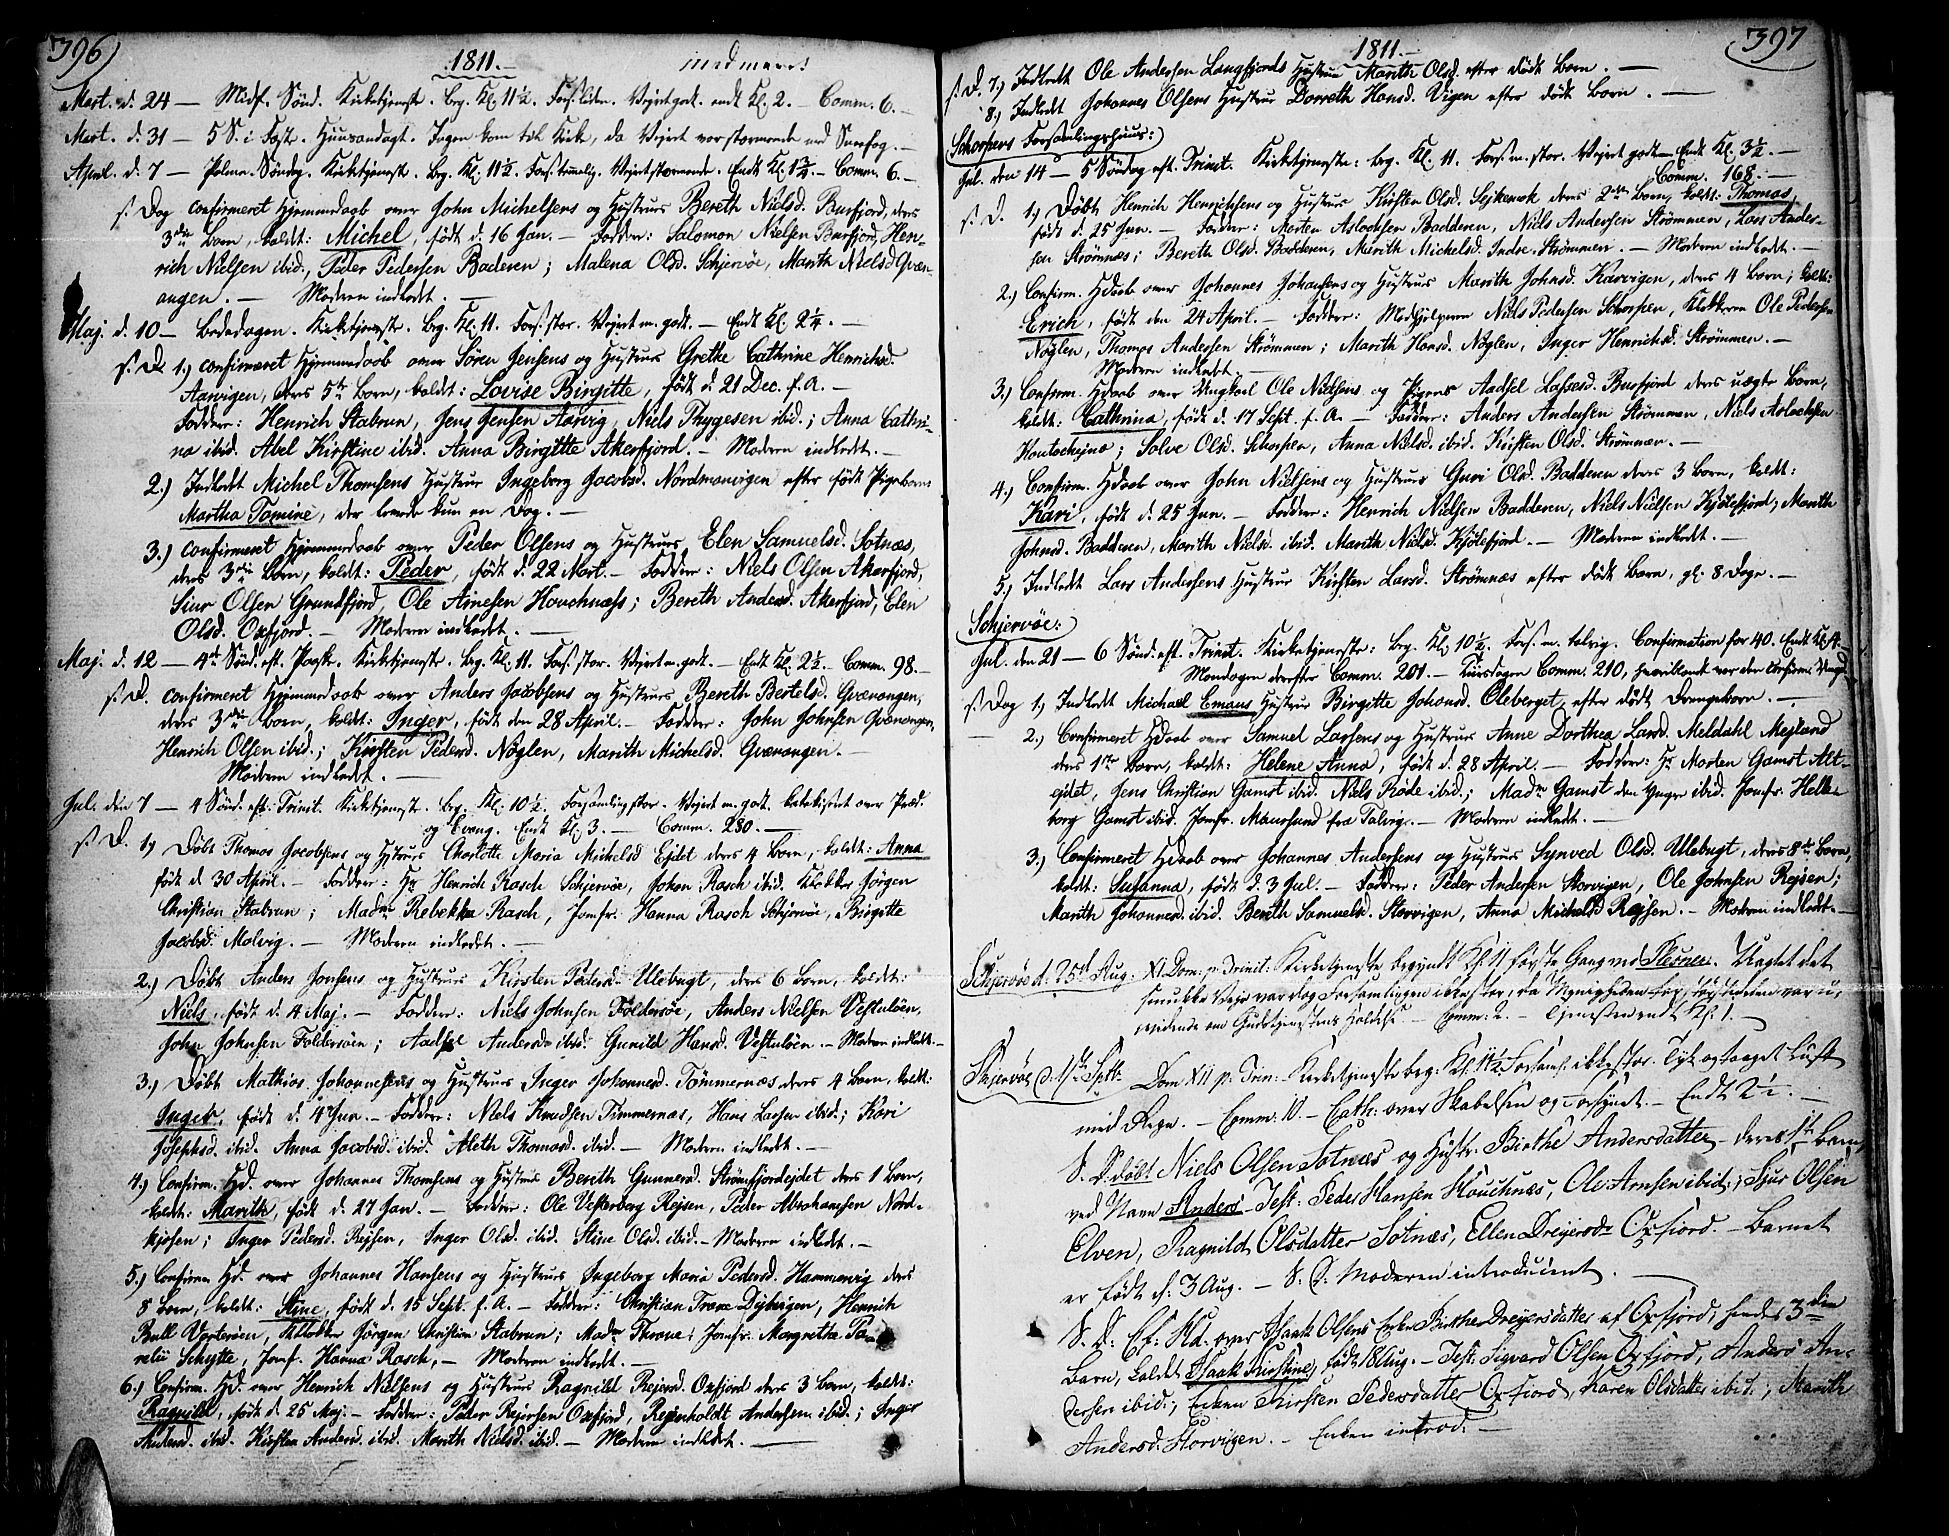 396)
1811.
Mart. d. 24 — Midf. Sønd. Kirketjeneste. beg. Kl. 11½. Fors. liden. Vejret godt. endt Kl. 2. — Comm. 6. —
Mart. d. 31 — 5 S. i Fast. Huusandagt. Ingen kom til Kirke, da Vejret var stormende med Sneefog. —
April. d. 7 — Palme-Søndag. Kirketjenest. Beg. Kl. 11½. Fors. Vejret stormende. Endt Kl. 1¾. — Comm. 6. —
s. Dag confirmeret Hjemmedaab over John Michelsens og Hustrues Bereth Nielsd. Burfjord, deres
3die Barn, kaldt: Michel, født d. 16 Jan. — Fadder: Salomon Nielsen Burfjord, Hen-
rich Nielsen ibid., Peder Pedersen Baderen; Malena Olsd. Schjervøe, Marith Nielsd. Qvæn-
angen. — Moderen indledet. —
Maj. d. 10 — Bededagen. Kirketjeneste. beg. Kl. 11. Fors. stor. Vejret m. godt. — Endt Kl 2¼. —
s. D. 1.) confirmeret Hjemmedaab over Sören Jensens og Hustrues Grethe Cathrine Henrichsd.
Aarvigen, deres 5te Barn, kaldt: Lovise Birgitte, født d. 21 Dec. f. A. —
Fadder: Henrich Stabrun, Jens Jensen Aarvig, Niels Thygesen ibid.; Anna Cathri-
na ibid. Abel Kirstine ibid. Anna Birgitte Akerfjord. — Moderen indledet. —
2.) Indledet Michel Thomsens Hustrue Ingeborg Jacobsd. Nordmanvigen efter født Pigebarn
Martha Tomine, der levede kun en Dag. —
3.) confirmeret Hjemmedaab over Peder Olsens og Hustrues Elen Samuelsd. Sotnæs,
deres 3die Barn, kaldt: Peder, født d. 22 Mart. — Fadder: Niels Olsen Akerfjord,
Siur Olsen Grundfjord, Ole Arnesen Houchnæss; Bereth Andersd. Akerfjord, Elen
Olsd. Oxfjord. — Moderen indledet. —
Maj. d. 12 — 4de Sønd. eft. Paaske. Kirketjeneste. beg. Kl. 11. Fors. stor. Vejret m. godt. — Endt Kl. 2½. Comm. 98. —
s. D. confirmeret Hjemmedaab over Anders Jacobsens og Hustrues Bereth Bertelsd. Qvænangen,
deres 3die Barn, kaldt: Inger, født den 28 April. — Fadder: John Johnsen Qvænangen,
Henrich Olsen ibid.; Kirsten Pedersd. Nöglen, Marith Michelsd. Qvænangen. —
Moderen indledet. —
Jul. den 7 — 4 Sönd. eft. Trinit. Kirketjenest. beg. Kl. 10½. Forsamling stor. Vejret m. godt. katekiseret over Præd.
og Evang. Endt Kl. 3. — Comm. 280. —
s. D. 1.) Döbt Thomas Jacobsens og Hustrues Charlotte Maria Michelsd Ejdet deres 4 Barn, kaldt: Anna
født d 30 April. — Fadder: Hr Henrich Rasch Schjervöe, Johan Rasch ibid. Klokker Jörgen
Christian Stabrun; Made Rebekka Rasch, Jomfr. Hanna Rasch Schjervöe, Birgitte
Jacobsd. Molvig. — Moderen indledet. —
2.) Döbt Anders Jonsens og Hustrues Kirsten Pedersd. Ulebugt, deres 6 Barn, kaldt:
Niels, født d. 4 Maj. — Fadder: Niels Johnsen Földersöe, Anders Nielsen Vestulöen,
John Johnsen Földersöen; Aadsel Andersd. ibid. Gunild Hansd. Vestulöen. — Moderen indledet. —
3.) Döbt Mathias Johannesens og Hustrues Inger Johannesd. Tömmernæs deres 4 Barn, kaldt:
Inger, født d. 4 Jun. — Fadder: Niels Knudsen Timmernæs, Hans Larsen ibid.; Kari
Josephsd. ibid. Anna Jacobsd. ibid. Aleth Thomasd. ibid. — Moderen indledet. —
4.) Confirm. Hd. over Johannes Thomsens og Hustrues Bereth Gunnersd. Strömfjordejdet deres 1 Barn,
kaldt: Marith, født d. 27 Jan. — Fadder: Ole Vesterberg Rejsen, Peder Abrahamsen Nord-
kjosen; Inger Pedersd. Rejsen, Inger Olsd. ibid. Stine Olsd. ibid. — Moderen indledet. —
5.) Confirm Hd. over Johannes Hansens og Hustrues Ingeborg Maria Pedersd. Hammervig deres
8 Barn, kaldt: Stine, født d. 15 Sept. f. A. — Fadder: Christian Trane Dybvigen, Henrich
Bull Vorterøen, Klokker Jörgen Christian Stabrun; Made Throne; Jomfr. Margretha
Schytte, Jomf. Hanna Rasch, — Moderen indledet. —
6.) Confirm. Hd. over Henrich Nielsens og Hustrues Ragnild Rejersd. Oxfjord deres 3 Barn, kaldt:
Ragnild, født d. 25 Maj. — Fadder: Peder Rejersen Oxfjord, Regenholdt Andersen ibid.; Inger
Andersd. ibid. Kirsten Andersd. ibid. Marith Nielsd. ibid. — Moderen indledet. —
1811.
(397
s. D. 7.) Indledt Ole Andersen Langfjords Hustrue Marith Olsd. efter dødt Barn. —
8.) Indledet Johannes Olsens Hustrue Dorreth Hansd. Vigen efter dødt Barn. —
Schorpens Forsamlingshuus:)
Jul. den 14 — 5 Söndag eft. Trinit. Kirketjeneste: beg. Kl. 11. Fors. m. stor. Vejret godt — Endt Kl. 3½. —
Comm. 168. —
s. D. 1.) Døbt Henrich Henrichsens og Hustrues Kirsten Olsd. deres 2det Barn, kaldt: Thomas,
født d. 25 Jun. — Fadder: Morten Aslochsen Badderen, Niels Andersen Strömmen, Lars Ander-
sen Strömnæs; Bereth Olsd. Badderen, Marith Michelsd. Indre-Strömmen. — Moderen indledet. —
2.) Confirm. Hdaab over Johannes Johansens og Hustrues Marith Johnsd. Karvigen, deres 4 Barn; kaldt:
Erich, født den 24 April. — Fadder: Medhjelperen Niels Pedersen Schorpen, Klokkeren Ole Pedersen
Nöglen, Thomas Andersen Strömmen; Marith Hansd. Nöglen, Inger Henrichsd. Strömmen. —
Moderen indledet. —
3.) Confirm. Hdaab over Ungkarl Ole Nielsens og Pigens Aadsel Lassesd. Burfjord deres uægte Barn,
kaldt: Cathrina, født d. 17 Sept. f. A. — Fadder: Anders Andersen Strömmen, Niels Aslochsen
Koutochejno; Solve Olsd. Schorpen, Anna Nielsd. ibid. Kirsten Olsd. Strömmen. —
4.) Confirm. Hdaab over John Nielsens og Hustrues Guri Olsd. Badderen deres 3 Barn, kaldt:
Kari, født d. 25 Jun. — Fadder: Henrich Nielsen Badderen, Niels Nielsen Kjölefjord, Marith
Johnsd. Badderen, Marith Nielsd. ibid. Marith Nielsd. Kjölefjord. — Moderen indledet. —
5.) Indledet Lars Andersens Hustrue Kirsten Larsd. Strömnæs efter dødt Barn, gl: 8 Dage. —
Schjervöe:
Jul. den 21 — 6 Sönd. eft. Trinit. Kirketjeneste: beg. Kl. 10½. Fors. m. talrig. Confirmation for 40. Endt Kl. 4.
Mandagen derefter Comm. 201. — Tiirsdagen Comm. 210, hvoriblandt var den confirm. Ungd.
s. Dag 1.) Indledt Michael Emaus Hustrue Birgitte Johansd. Oleberget, efter dødt Drengebarn. —
2.) Confirmeret Hdaab over Samuel Larsens og Hustrues Anne Dorthea Larsd. Meldahl Mejland
deres 1ste Barn, kaldt: Helene Anna, født d. 28 April. — Fadder: Hr Morten Gamst Alt-
ejdet, Jens Christian Gamst ibid. Niels Röde ibid.; Made Gamst den Yngre ibid. Jomfr. Helle-
borg Gamst ibid. Jomfr. Maursund fra Talvig. — Moderen indledet. —
3.) Confirmeret Hdaab over Johannes Andersens og Hustrues Synved Olsd. Ulebugt, deres 8de Barn,
kaldt: Susanna, født d. 3 Jul. — Fadder: Peder Andersen Storvigen, Ole Johnsen Rejsen;
Marith Johannesd. ibid. Bereth Samuelsd. Storvigen, Anna Michelsd Rejsen. — Moderen indledet. —
Schjervöe d: 25d Aug: XI Dom: p: Trinit: Kirketjeneste begyndt Kl: 11 første Gang med Plesner. Uagtet det
smukke Vejr var dog Forsamlingen ikke stor, da Menigheden var u-
vidende om Gudstjenestens Holdelse. — Comm: 2. — Tjenesten endt Kl: 1. —
Skjervöe d: 1ste Sptr: Dom XII p: Trin: Kirketjeneste beg: Kl: 11½ Forsaml: ikke stor. Tyk og taaget Luft
med Regn. — Comm: 10. — Cath: over Skabelsen og Forsynet. — Endt 2½. —
S. D. döbt Niels Olsen Sotnæs og Hustr. Birthe Andersdatter — deres 1ste Barn
ved Navn Anders — Test: Peder Hansen Houchnæs, Ole Arnsen ibid:; Sjur Olsen
Elven, Ragnild Olsdatter Sotnæs, Ellen Dreyersdr Oxfiord. — Barnet
er født d: 3 Aug. — S. D. Moderen introduceret. —
S. D: Cf: Hd: over Isaak Olsens Enke Birthe Dreyersdatter af Oxfjord, hendes 3die
Barn, kaldt Isaak Kirstine, født 18 Aug. — Test: Sigvard Olsen Oxfjord, Anders An-
dersen ibid:, Enken Kirsten Pedersdatter Oxfiord, Karen Olsdatter ibid:, Marith
Andersd. Storvigen. — Enken introd. —